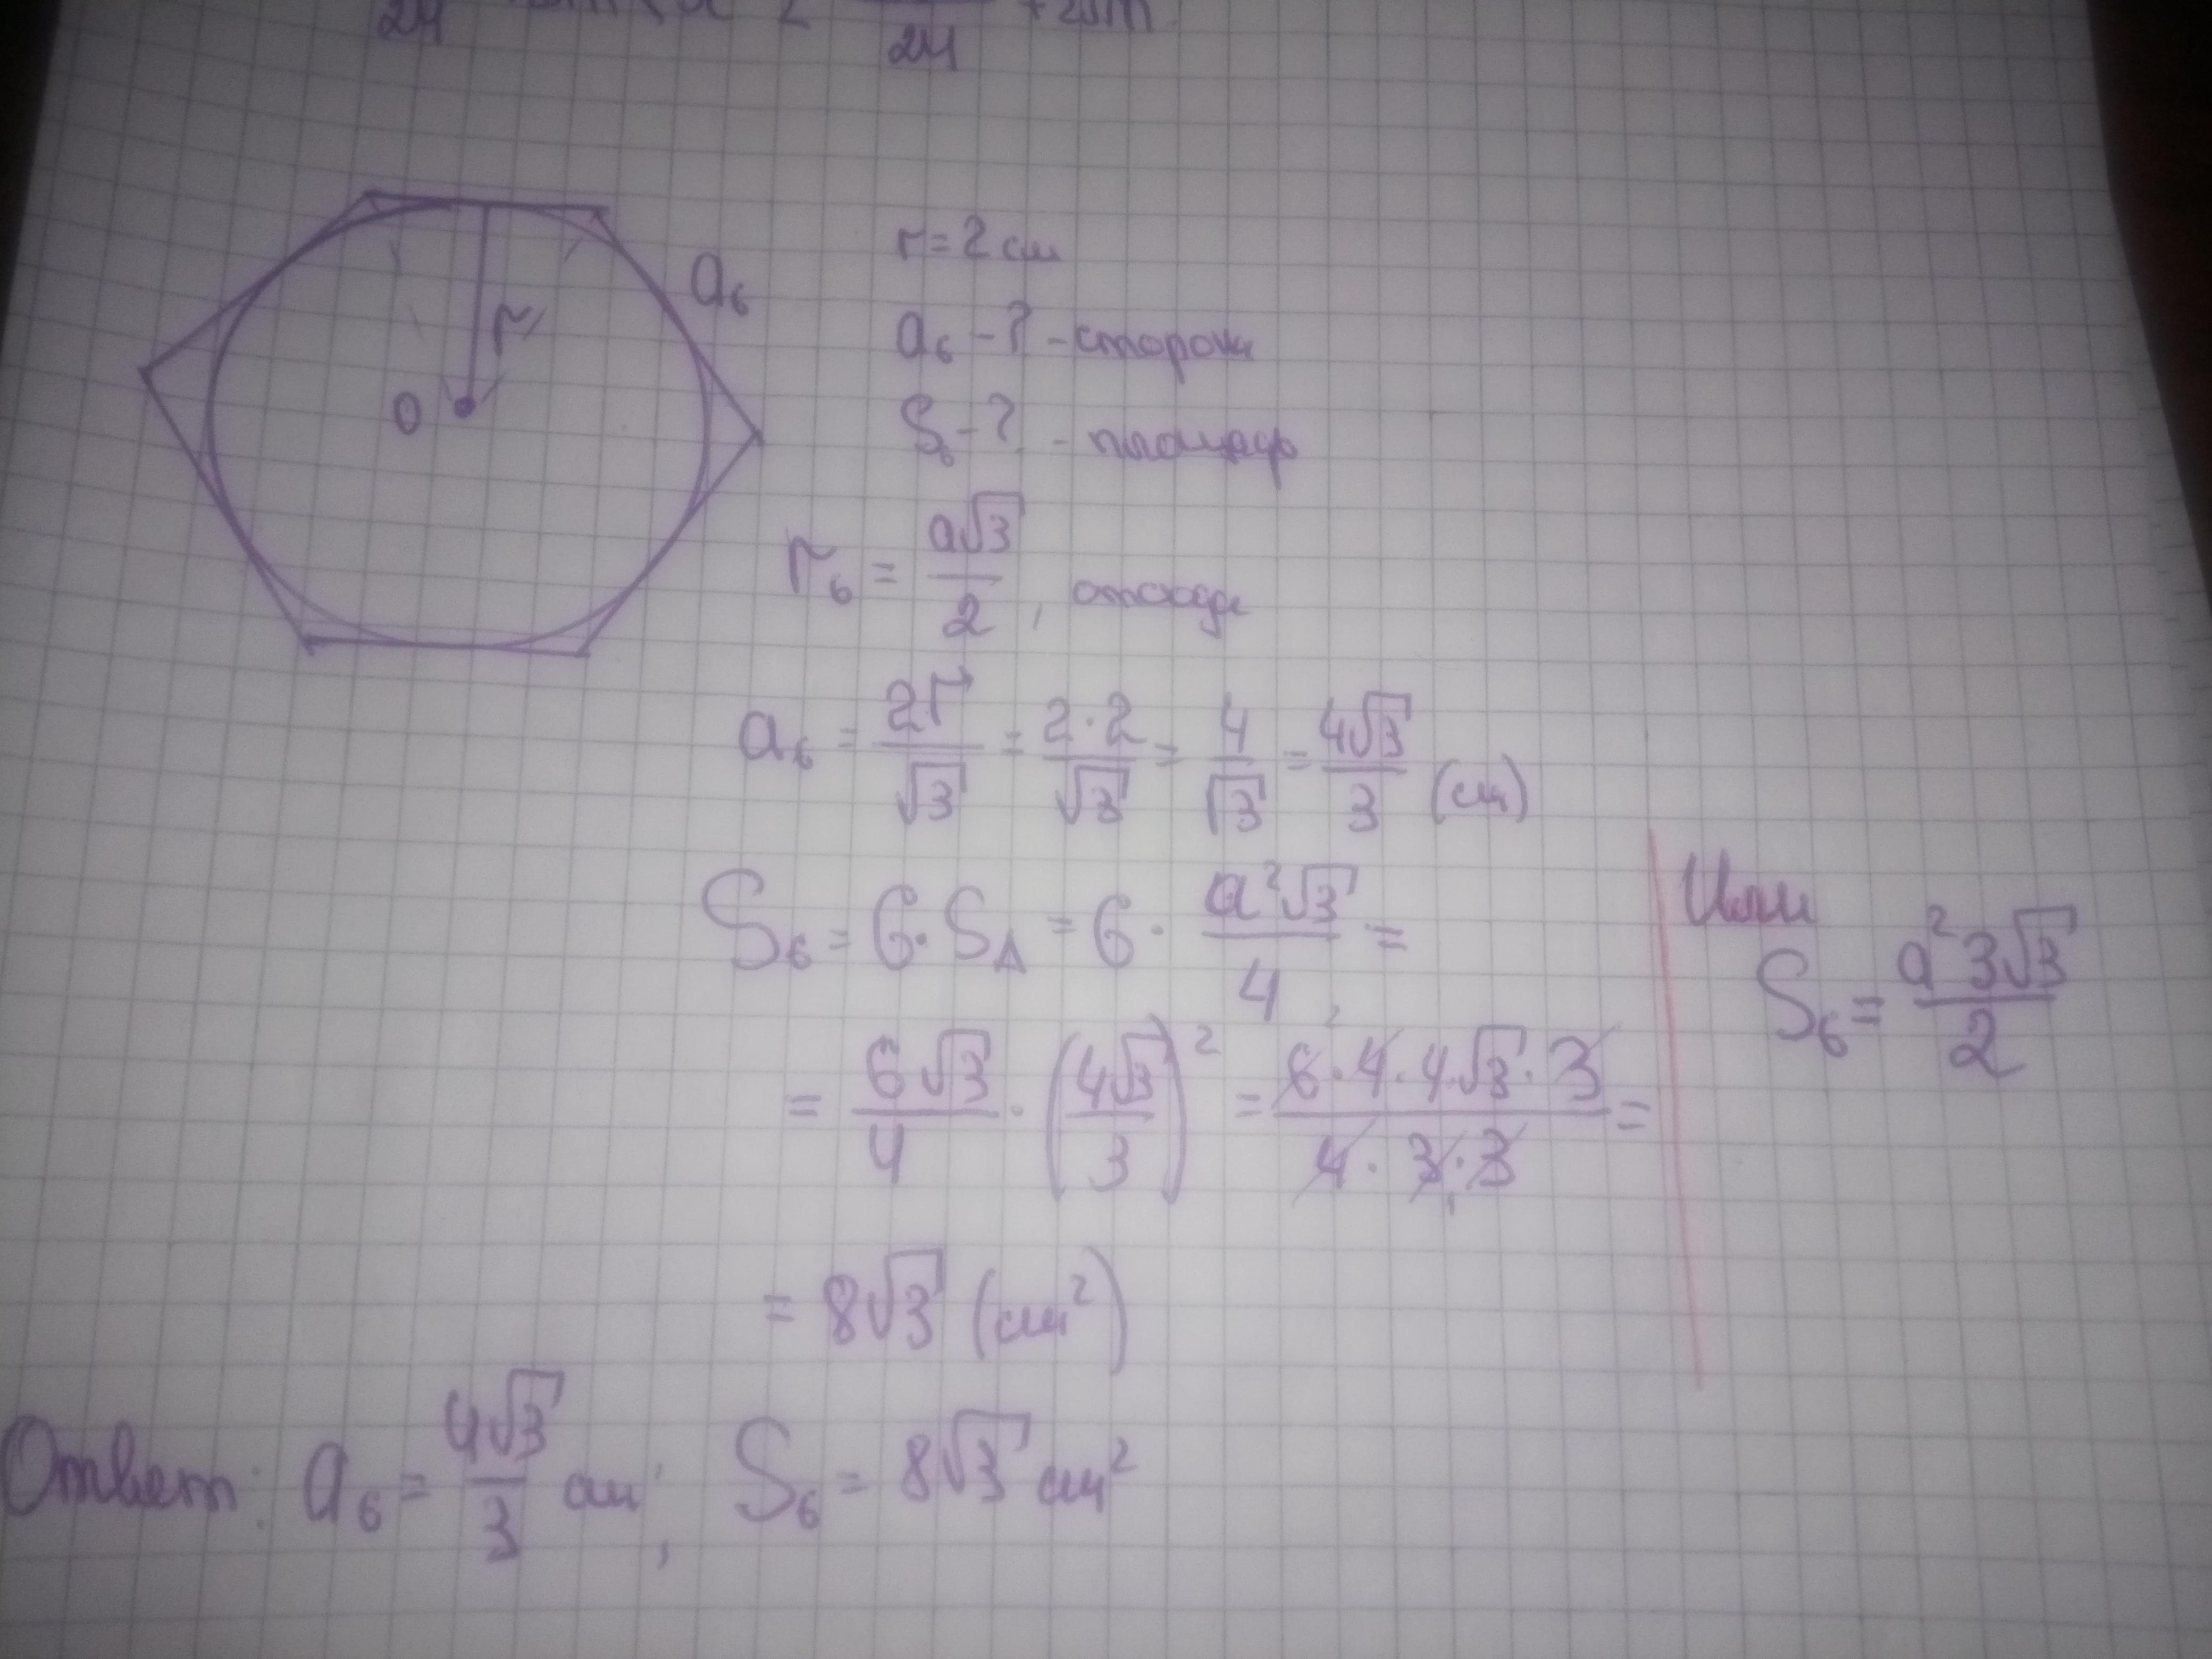 24
24
a₆
r
O
r = 2 см
a₆ - ? - сторона
S₆ - ? - площадь
r₆ = a√3/2, отсюда
a₆ = 2r/√3 = 2·2/√3 = 4/√3 = 4√3/3 (см)
S₆ = 6·S△ = 6 · a²√3/4 =
= 6√3/4 · (4√3/3)² = 6·4·4√3·3/4·3·3 =
= 8√3 (см²)
Или
S₆ = a²3√3/2
Ответ: a₆ = 4√3/3 см; S₆ = 8√3 см²